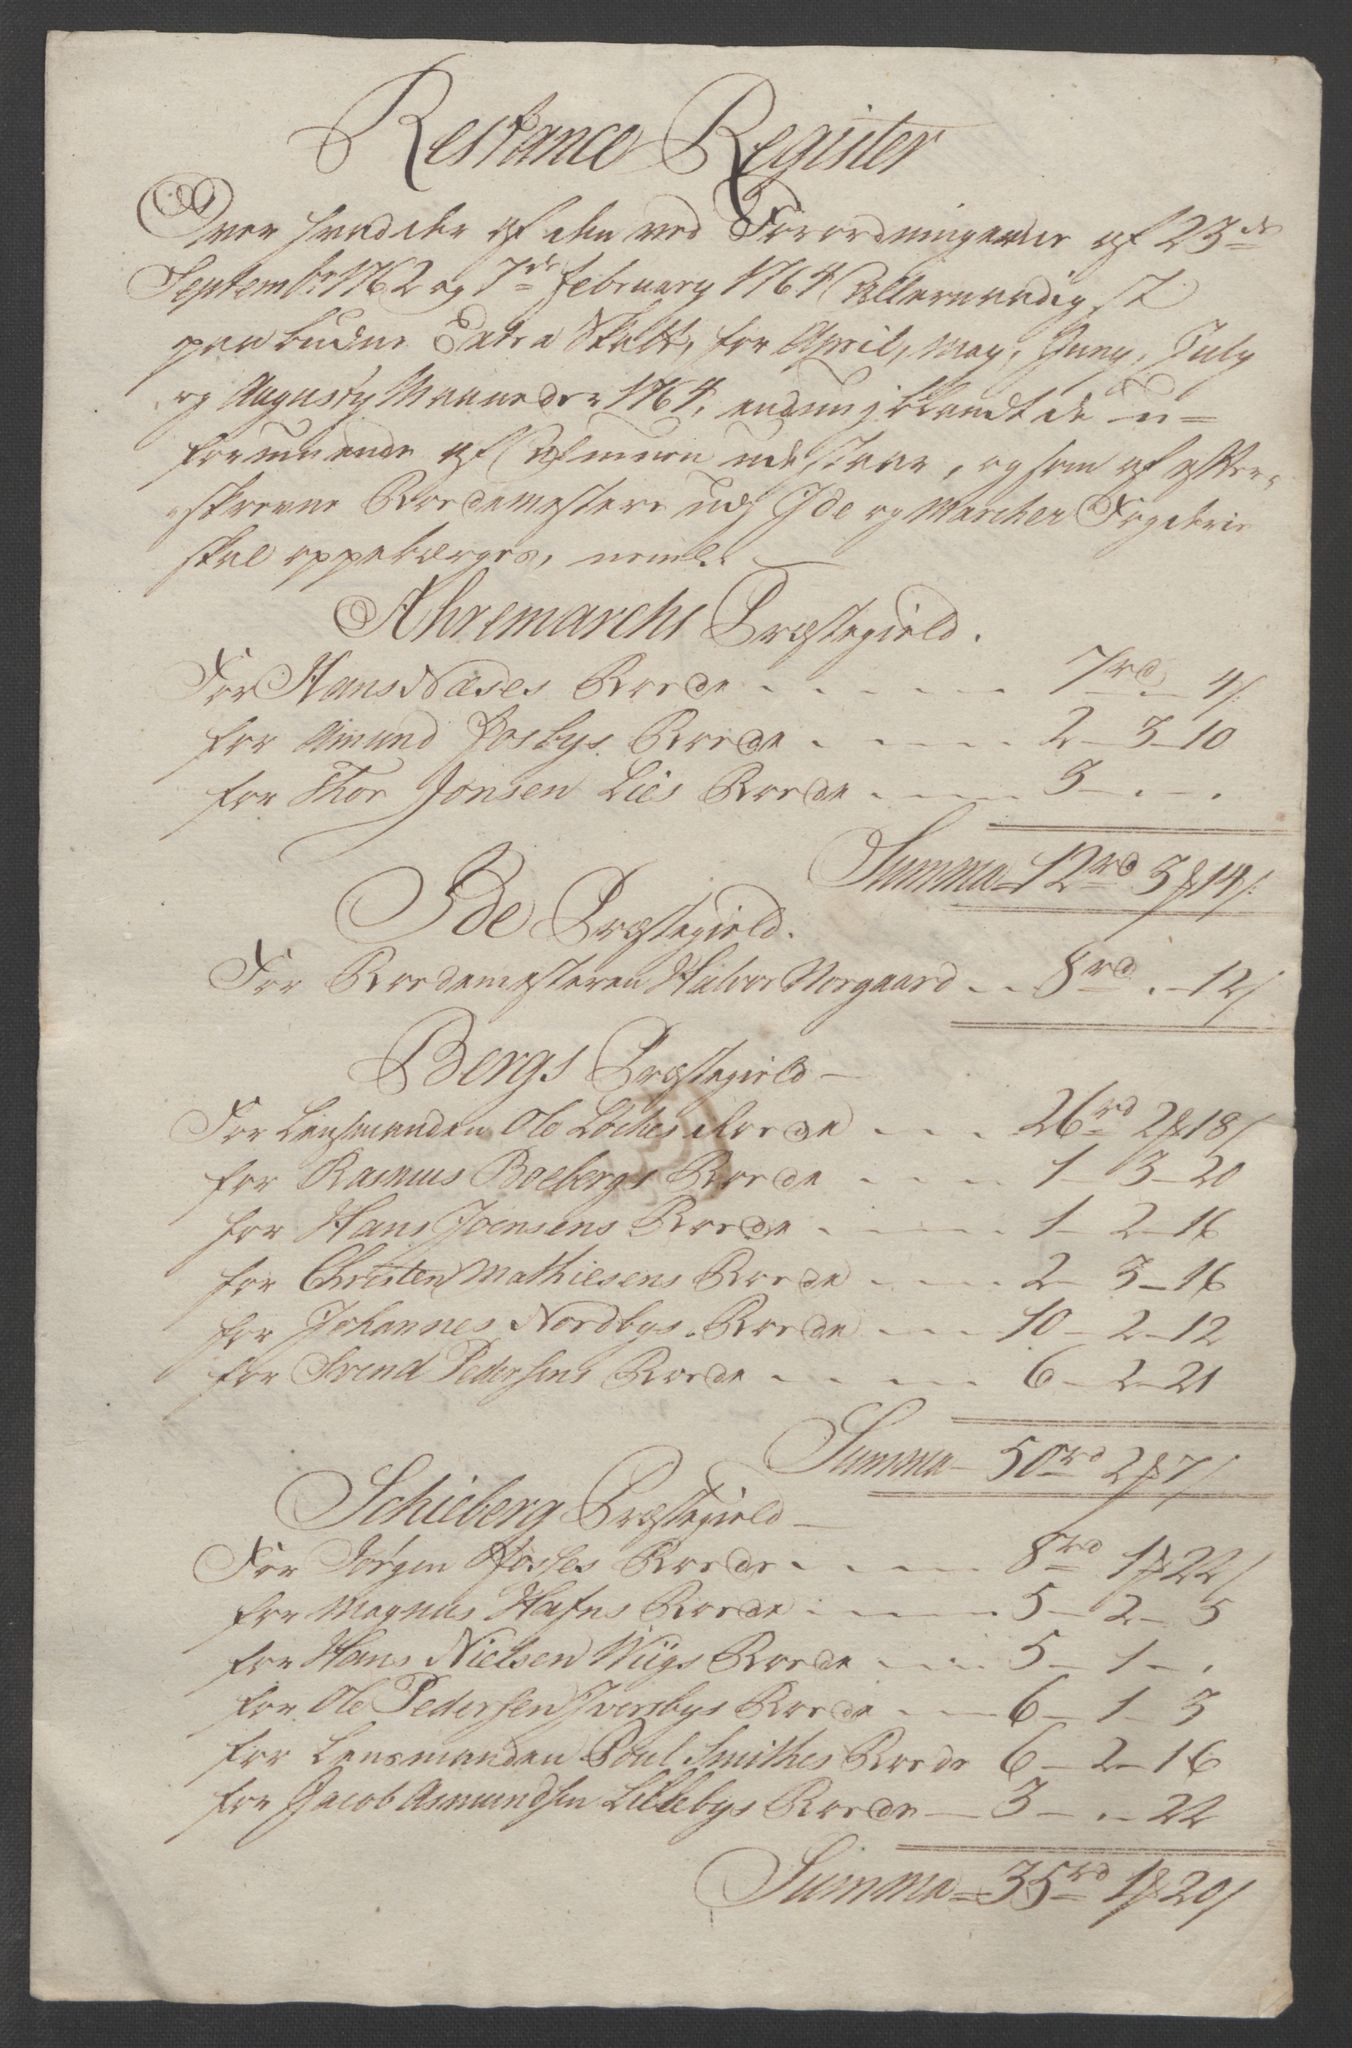 Restance Register
Over hvad der af den ved Forordningerne af 23de
Septembr 1762 og 7de February 1764 Allernaadigst
paabudne Extra Skatt, for April, May, Juny, July
og Augusty Maaneder 1764, endnu j blandt de u=
formuende af Almuen udestaar, og som af efter=
skrevne Roedemestere udj Ide og Marcher Fogderie
skal oppebærges, neml.
Ahremarchs Præstegield.
For Hans Næses Roede . . . . . 7rd . 4s
for Amund Josbys Roede . . . . 2 - 3 - 10
for Thor Jonsen Lies Roede . . . 3 - . - .
Summa 12rd 3# 14s
Ide Præstegield.
For Roedemesteren Halvor Norgaard . . 8rd . - 12s
Bergs Præstegield
For Lensmanden Ole Løches Roede . . . 26rd 2# 18s
for Rasmus Boebergs Roede . . . . 1 - 3 - 20
for Hans Joensens Roede . . . . 1 - 2 - 16
for Christen Mathiesens Roede . . . 2 - 3 - 16
for Johannes Nordbys Roede . . . 10 - 2 - 12
for Svend Pedersens Roede . . . . 6 - 2 - 21
Summa 50rd 2# 7s
Schieberg Præstegield
For Jørgen Roede . . . . 8rd 1# 22s
for Magnus Hafns Roede . . . . 5 - 2 - 5
for Hans Nielsen Wiigs Roede . . . 5 - 1 - .
for Ole Pedersen Iversbys Roede . . 6 - 1 - 3
for Lensmanden Poul Smithes Roede 6 - 2 - 16
for Jacob Asmundsen Lillebys Roede 3 - . - 22
Summa 35rd 1# 20s